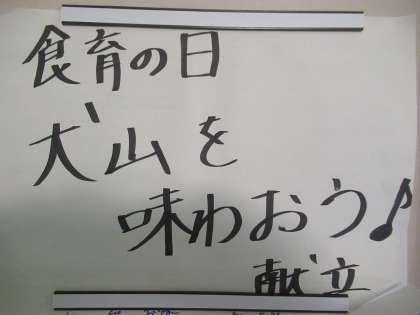 食育の日
犬山を
味わおう♪
献立